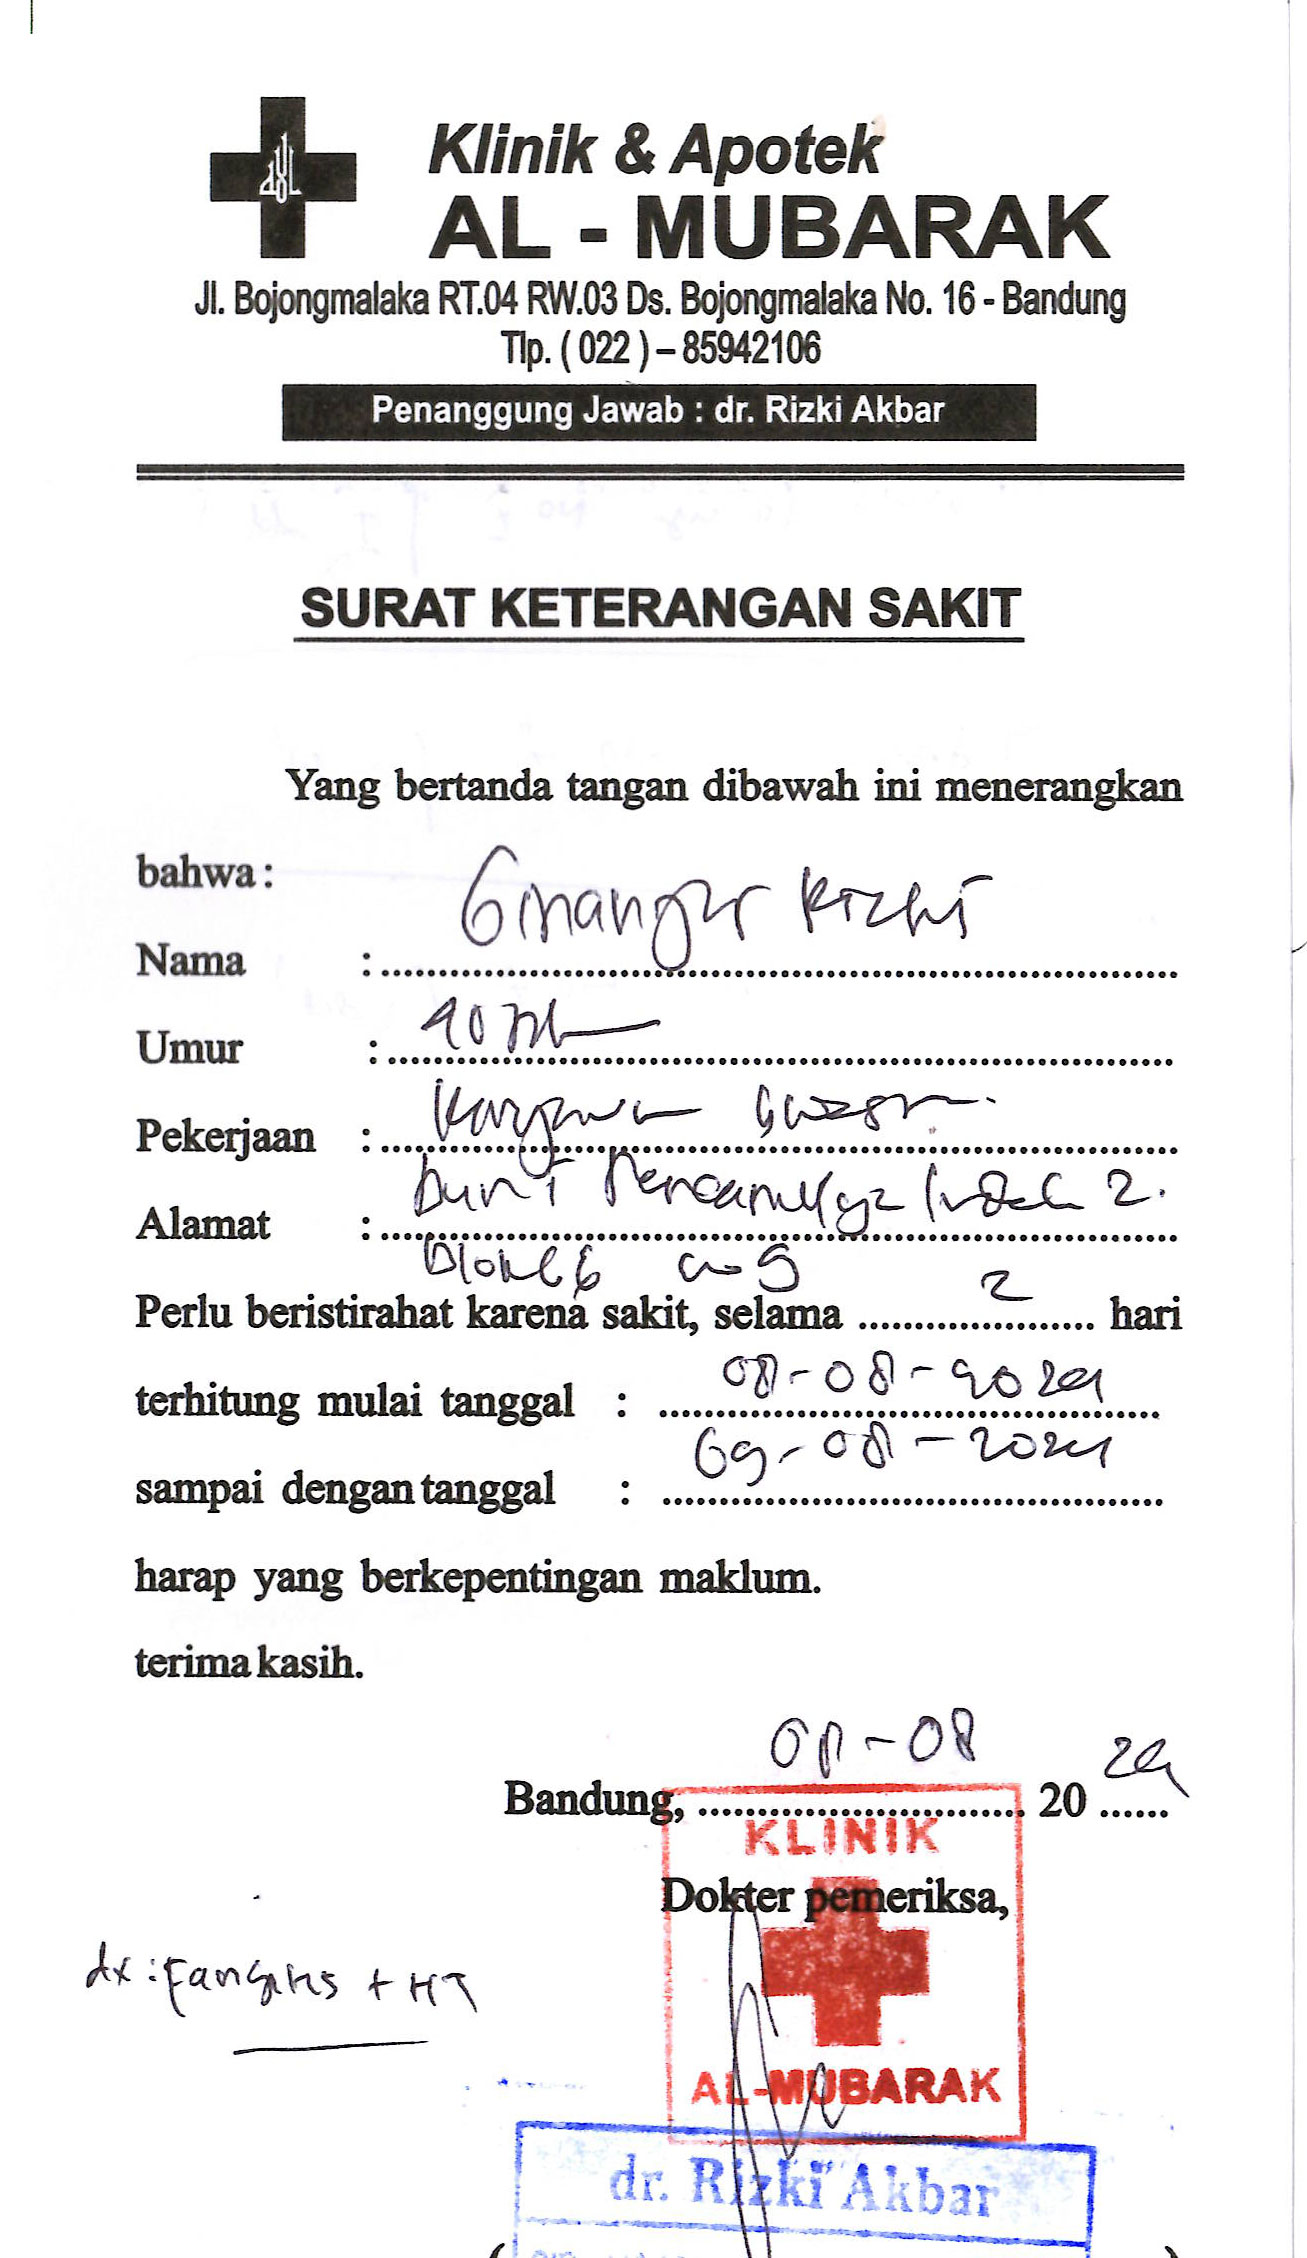 Klinik & Apotek
AL - MUBARAK
Jl. Bojongmalaka RT.04 RW.03 Ds. Bojongmalaka No. 16 - Bandung
Tlp. ( 022 ) – 85942106
Penanggung Jawab : dr. Rizki Akbar
SURAT KETERANGAN SAKIT
Yang bertanda tangan dibawah ini menerangkan
bahwa :
Nama : Ginanjar Rizki
Umur : 40 Th
Pekerjaan : Karyawan Swasta
Alamat : Bumi 2.
Blok 6 no 9
Perlu beristirahat karena sakit, selama 2 hari
terhitung mulai tanggal : 08-08-2024
sampai dengan tanggal : 09-08-2024
harap yang berkepentingan maklum.
terima kasih.
Bandung, 08-08 20 24
KLINIK
Dokter pemeriksa,
dx : + HT
AL-MUBARAK
dr. Rizki Akbar